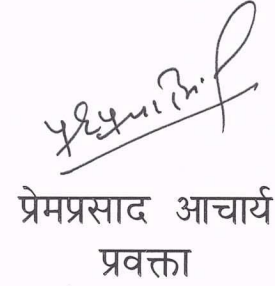 प्रेमप्रसाद आचार्य
प्रवक्ता